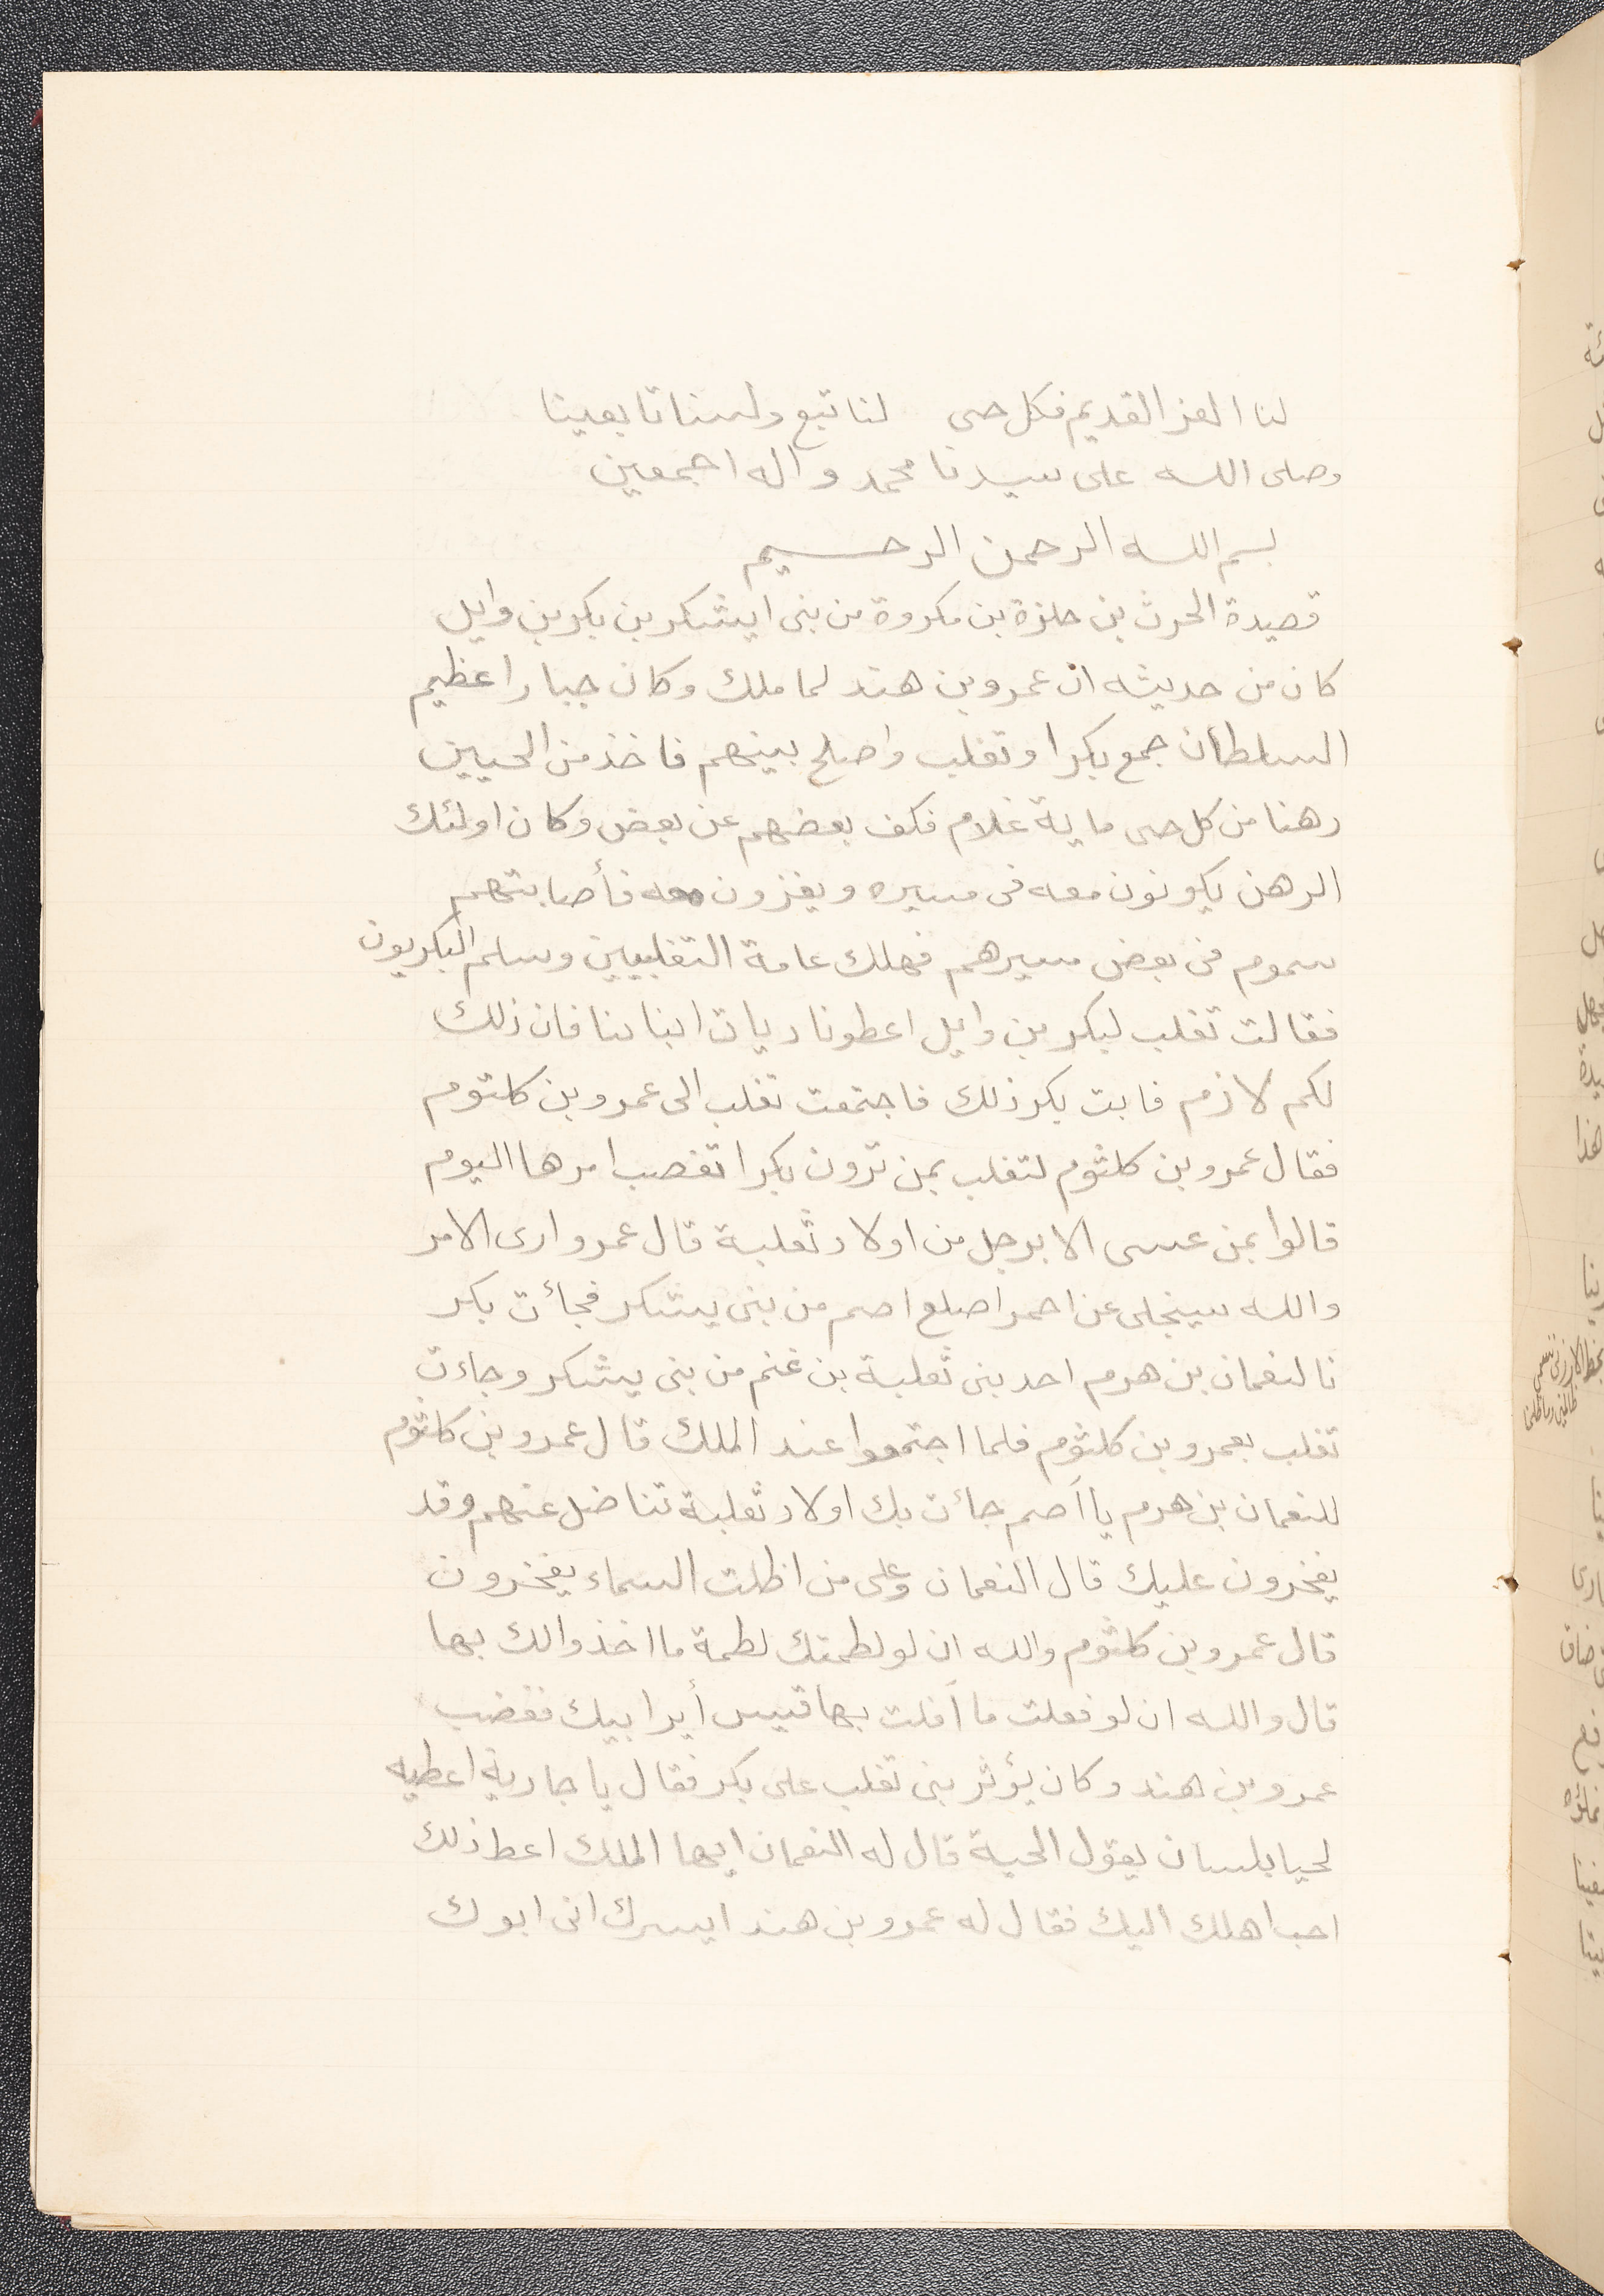 لنا العز القديم فكل حى لنا تبع ولسنا تابعينا
وصلى الله على سيدنا محمد واله اجمعين
بسم الله الرحمن الرحيم
قصيدة الحرث بن حلزة بن مكروة من بنى ايشكر بن بكر بن وايل
كان من حديثه ان عمرو بن هند لما ملك وكان جبارا عظيم
السلطان جمع بكرا وتغلب واصلح بينهم فاخذ من الحيين
رهنا من كل حى ماية غلام فكف بعضهم عن بعض وكان اولئك
الرهن يكونون معه فى مسيره ويغزون معه فأصابتهم
سموم فى بعض مسيرهم فهلك عامة التغلبيين وسلم البكريون
فقالت تغلب لبكر بن وايل اعطونا ديات ابناىنا فان ذلك
لكم لازم فابت بكر ذلك فاجتمعت تغلب الى عمرو بن كلتوم
فقال عمرو بن كلثوم لتغلب بمن ترون بكرا تعصب امرها اليوم
قالوا بمن عسى الا برجل من اولاد ثعلبة قال عمرو ارى الامر
والله سينجلى عن احمر اصلع اصم من بنى يشكر فجائت بكر
نالنعمان بن هرم احد بنى ثعلبة بن غنم من بنى يشكر وجاءت
تغلب بعمرو بن كلثوم فلما اجتمعوا عند الملك قال عمرو بن كلثوم
للنعمان بن هرم يا اصم جائت بك اولاد ثعلبة تناضل عنهم وقد
يفخرون عليك قال النعمان وعلى من اظلت السماء يفخرون
قال عمرو بن كلثوم والله ان لو لطمتك لطمة ما اخذوا لك بها
قال والله ان لو فعلت ما افلت بها قيس أير ابيك فغضب
عمرو بن هند وكان يؤثر بنى تغلب على بكر فقال يا جارية اعطيه
لحيا بلسان يقول الحية قال له النعمان ايها الملك اعط ذلك
احب اهلك اليك فقال له عمرو بن هند ايسرك انى ابوك